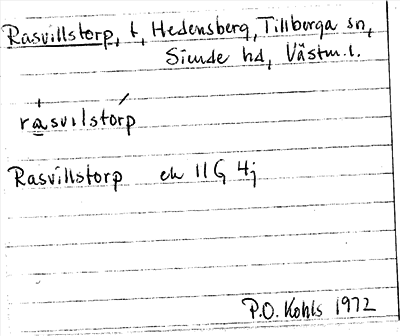 Rasvillstorp, t, Hedensberg, Tillberga sn,
Siende hd, Västm. l.
ra̲svılstórp
Rasvillstorp ek 11G 4j
P.O. Kohls 1972